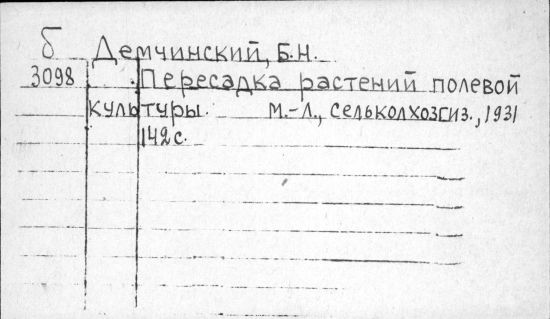 б Демчинский, Б.Н.
3098 Пересадка растений полевой
культуры. М.-Л., Сельколхозгиз., 1931
142 с.